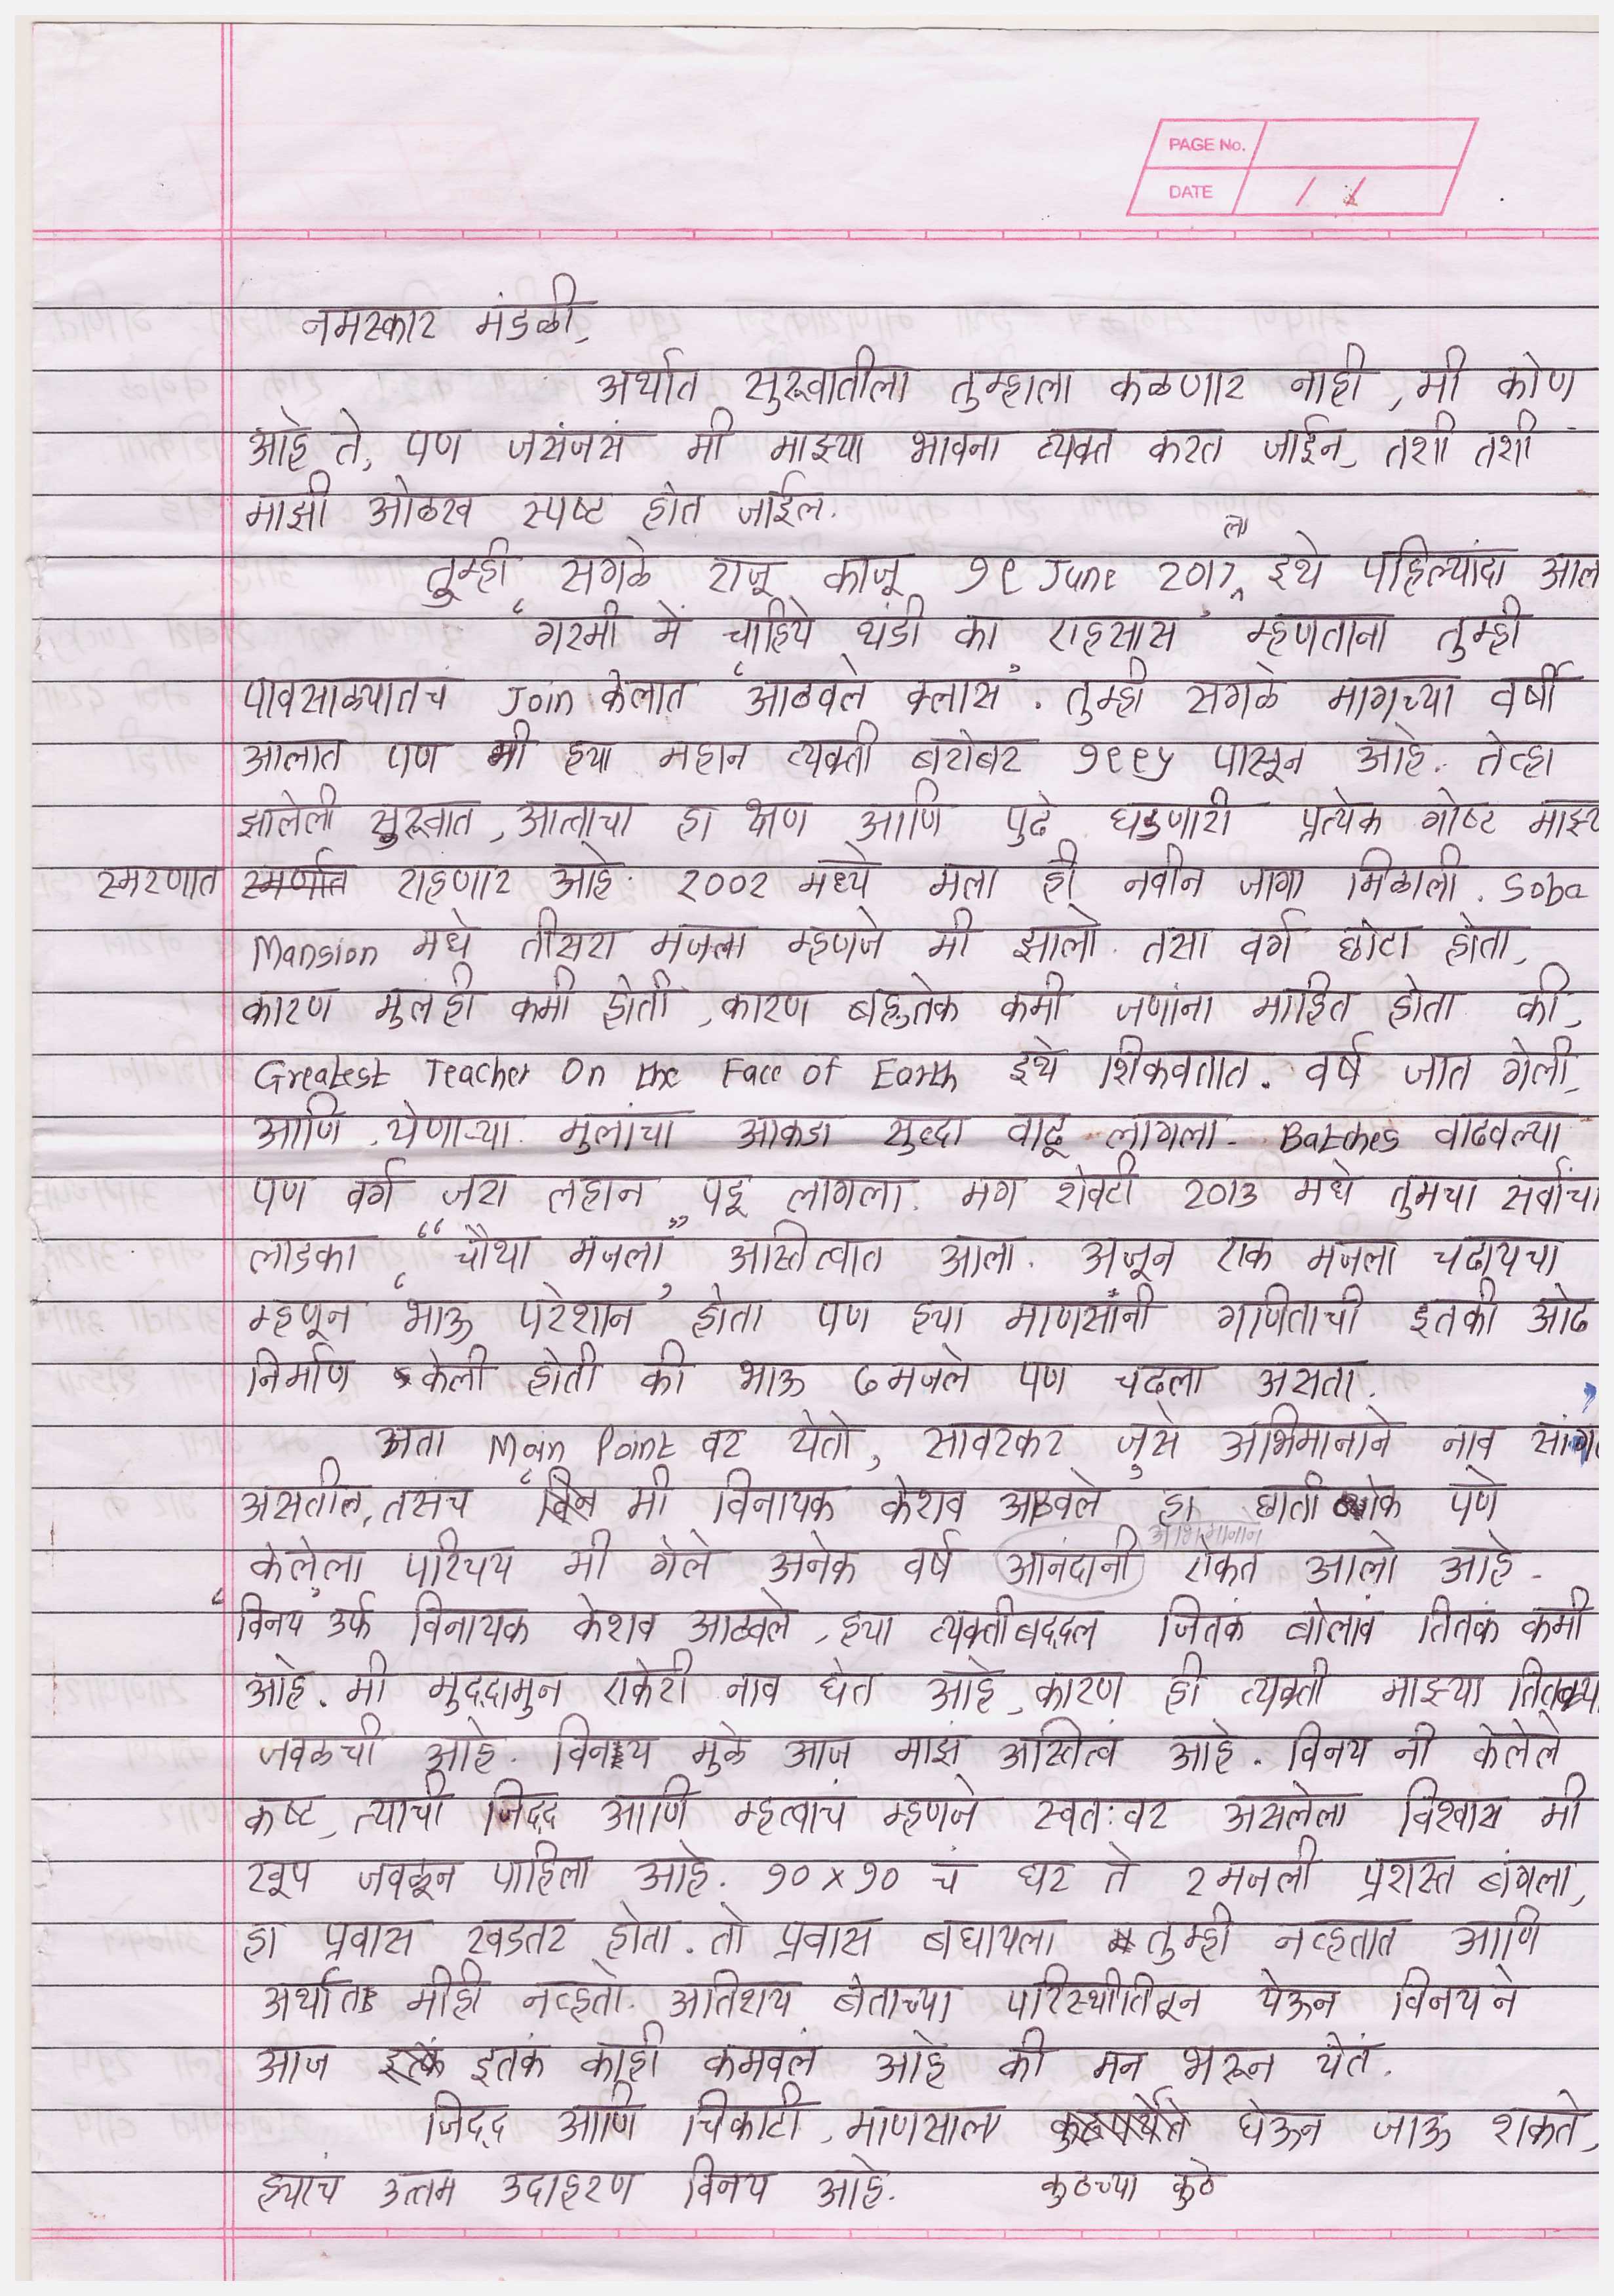 PAGE No.
DATE / /
नमस्कार मंडळी,
अर्थात सुरूवातीला तुम्हाला कळणार नाही, मी कोण
आहे ते, पण जसंजसं मी माझ्या भावना व्यक्त करत जाईन, तशी तशी
माझी ओळख स्पष्ट होत जाईल.
तुम्ही सगळे राजू काजू १९ June 2017 ला इथे पहिल्यांदा आल
'गरमी में चाहिये थंडी का एहसास' म्हणताना तुम्ही
पावसाळ्यातच Join केलात 'आठवले क्लास'. तुम्ही सगळे मागच्या वर्षी
आलात पण मी ह्या महान व्यक्ती बरोबर १९९५ पासून आहे. तेव्हा
झालेली सुरूवात, आत्ताचा हा क्षण आणि पुढे घडणारी प्रत्येक गोष्ट माझ्य
स्मरणात राहणार आहे. २००२ मध्ये मला ही नवीन जागा मिळाली. Soba
Mansion मधे तीसरा मजला म्हणजे मी झालो. तसा वर्ग छोटा होता,
कारण मुलंही कमी होती, कारण बहुतेक कमी जणांना माहित होता की,
Greatest Teacher On the Face of Earth इथे शिकवतात. वर्ष जात गेली,
आणि येणाऱ्या मुलांचा आकडा सुद्धा वाढू लागला. Batches वाढवल्या
पण वर्ग जरा लहान पडू लागला. मग शेवटी 2013 मधे तुमचा सर्वांचा
लाडका "चौथा मजला" अस्तित्वात आला. अजून एक मजला चढायचा
म्हणून 'भाऊ परेशान' होता पण ह्या माणसांनी गणिताची इतकी ओढ
निर्माण केली होती की भाऊ ७ मजले पण चढला असता.
अता Main Point वर येतो, सावरकर जसे अभिमानाने नाव सांगत
असतील, तसंच 'मी विनायक केशव आठवले' हा छाती ठोक पणे
केलेला परिचय मी गेले अनेक वर्ष आनंदानी अभिमानान ऐकत आलो आहे.
'विनय' उर्फ विनायक केशव आठवले, ह्या व्यक्तीबद्दल जितकं बोलावं तितकं कमी
आहे. मी मुद्दामुन एकेरी नाव घेत आहे, कारण ही व्यक्ती माझ्या तितक्या
जवळची आहे. विनय मुळे आज माझं अस्तित्व आहे. विनय नी केलेले
कष्ट, त्याची जिद्द आणि म्हत्वाचं म्हणजे स्वतःवर असलेला विश्वास मी
खूप जवळून पाहिला आहे. १० x १० चं घर ते २ मजली प्रशस्त बंगला,
हा प्रवास खडतर होता. तो प्रवास बघायला तुम्ही नव्हतात आणि
अर्थात मीही नव्हतो. अतिशय बेताच्या परिस्थीतितून येऊन विनय ने
आज इतकं काही कमवलं आहे की मन भरून येतं.
जिद्द आणि चिकाटी, माणसाला कुठच्या कुठे घेऊन जाऊ शकते,
ह्याचं उत्तम उदाहरण विनय आहे.